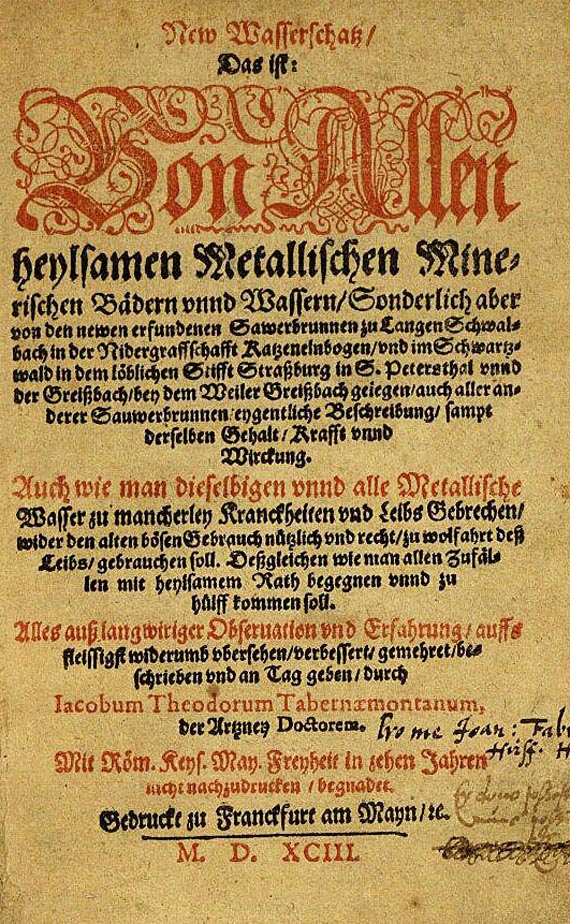 New Wasserschatz/
Das ist:
Von Allen
heylsamen Metallischen Mine-
rischen Bädern vnnd Wassern/Sonderlich aber
von den newen erfundenen Sawerbrunnen zu Langen Schwal-
bach in der Nidergraffschafft Katzenelnbogen/vnd im Schwartz-
wald in dem löblichen Stifft Straßburg in S. Petersthal vnnd
der Greißbach/bey dem Weiler Greißbach gelegen/auch aller an-
derer Sauwerbrunnen eygentliche Beschreibung/ sampt
derselben Gehalt/Krafft vnnd
Wirckung.
Auch wie man dieselbigen vnnd alle Metallische
Wasser zu mancherley Kranckheiten vnd Leibs Gebrechen/
wider den alten bösen Gebrauch nützlich vnd recht/zu wolfahrt deß
Leibs/gebrauchen soll. Deßgleichen wie man allen Zufäl-
len mit heylsamem Rath begegnen vnnd zu
hülff kommen soll.
Alles auß langwiriger Obseruation vnd Erfahrung/ auffs
fleissigst widerumb vbersehen/verbessert/gemehret/be-
schrieben vnd an Tag geben/durch
Iacobum Theodorum Tabernæmontanum,
der Artzney Doctorem.
Mit Röm. Keys. May. Freyheit in zehen Jahren
nicht nachzudrucken/begnadet.
Gedruckt zu Franckfurt am Mayn/ꝛc.
M. D. XCIII.